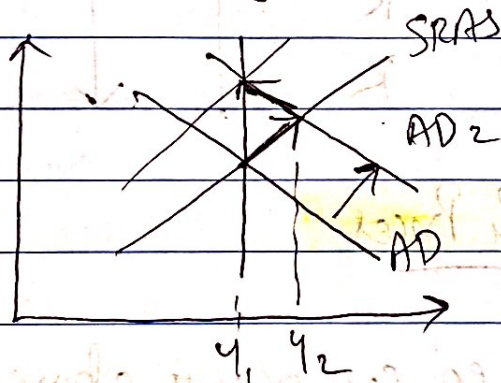 SRAS
AD2
AD
Y1 Y2